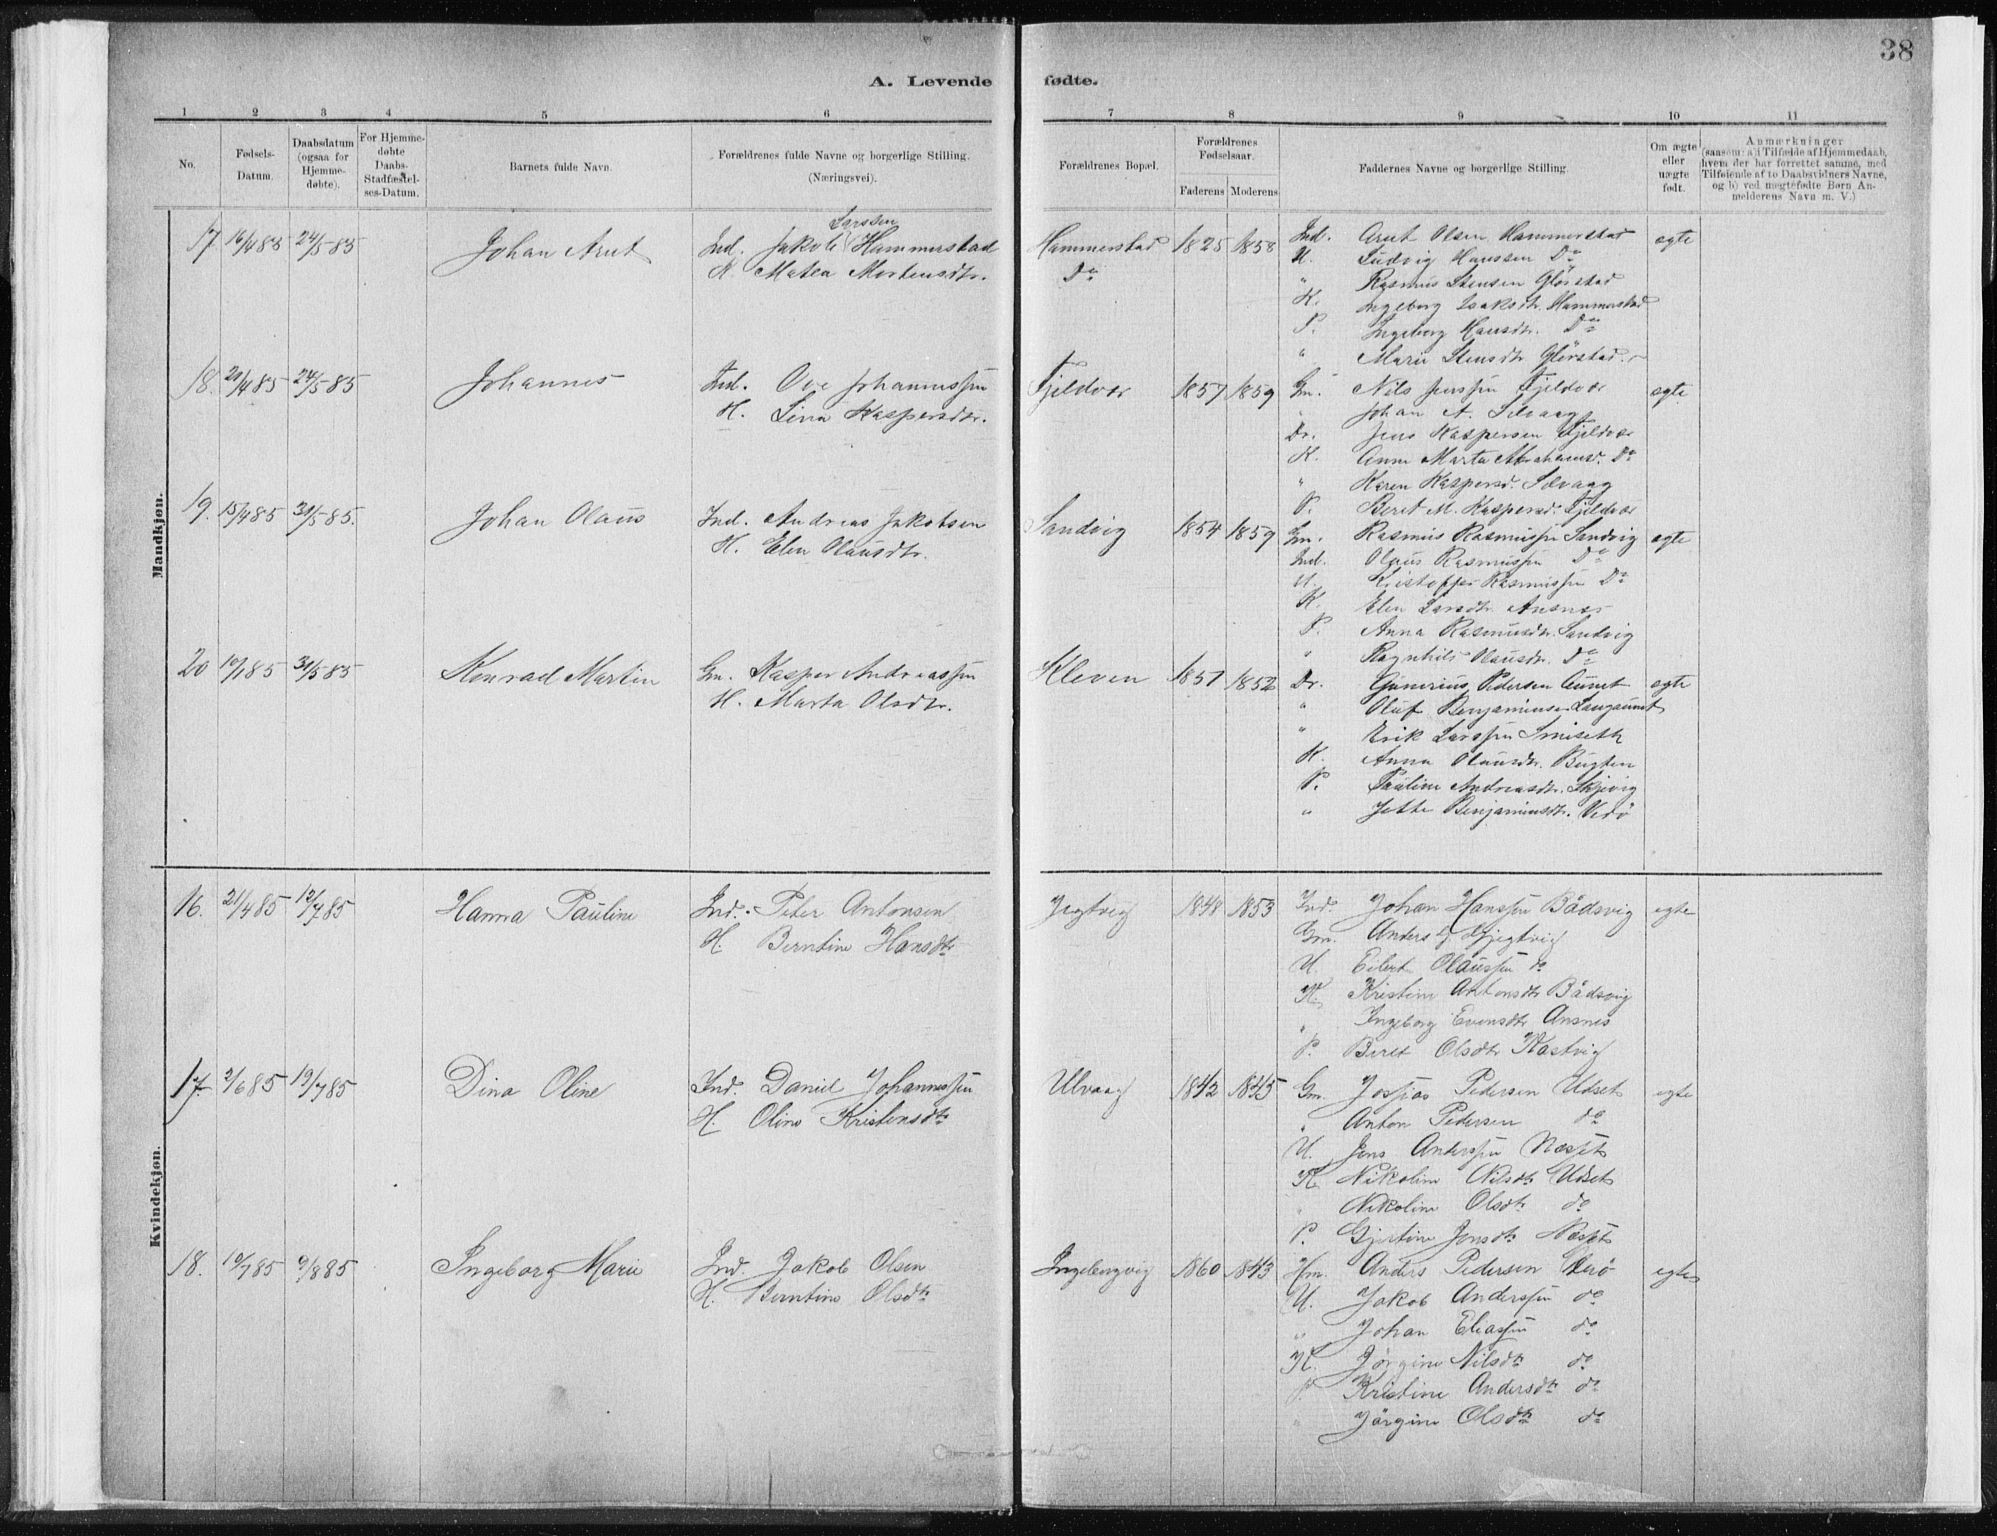 38
A. Levende fødte.
1 2 3 4 5 6 7 8 9 10 11
No.
Fødsels-
Datum.
Daabsdatum
(ogsaa for
Hjemme-
døbte).
For Hjemme-
døbte
Daabs-
Stadfæstel-
ses-Datum.
Barnets fulde Navn.
Forældrenes fulde Navne og borgerlige Stilling.
(Næringsvei).
Forældrenes Bopæl.
Forældrenes
Fødselsaar.
Faderens Moderens
Faddernes Navne og borgerlige Stilling.
Om ægte
eller
uægte
født.
Anmærkninger
(saasom: a) i Tilfælde af Hjemmedaab,
hvem der har forrettet samme, med
Tilføiende af to Daabsvidners Navne,
og b) ved uægtefødte Børn An-
melderens Navn m. V.)
Mandkjøn.
17. 16/4 85 24/5 85 Johan Arnt
Larssen
Ind. Jakob Hammerstad
K. Matea Mortensdtr.
Hammerstad 1825 1858
Do
Ind. Arnt Olsen Hammerstad egte
U. Ludvig Hanssen Do
" Rasmus Stensen Glørstad
K. Ingeborg Isaksdtr. Hammerstad
P. Ingeborg Hansdtr. Do
" Marie Stensdtr Glørstad
18. 21/4 85 24/5 85 Johannes
Ind. Ove Johannessen
H. Lina Kaspersdtr.
Fjeldvær 1857 1859
Gm. Nils Jenssen Fjeldvær egte
" Johan A. Selvaag
Dr. Jens Kaspersen Fjeldvær
K. Anne Marta Abrahamsd. Do
" Karen Kaspersd. Selvaag
P. Beret M. Kaspersd. Fjeldvær
19. 15/4 85 31/5 85. Johan Olaus
Ind. Andreas Jakobsen
H. Elen Olausdtr.
Sandvig 1854 1859
Gm. Rasmus Rasmussen Sandvig egte
Ind. Olaus Rasmussen Do
U. Kristoffer Rasmussen Do
K. Elen Larsdtr. Ansnes
P. Anna Rasmusdtr. Sandvig
" Ragnhild Olausdtr. Do
20 10/1 85 31/5 85 Konrad Martin
Gm. Kasper Andreassen
H. Marta Olsdtr.
Kleven 1851 1852
Dr. Gunerius Pedersen Aunet egte
" Oluf Benjaminsen Langaunet
" Erik Larssen Smiseth
K. Anna Olausdtr. Bugten
P. Pauline Andreasdtr. Skjevig
" Jette Benjaminsdtr. Verø
Kvindekjøn.
16. 21/4 85 12/7 85 Hanna Pauline
Ind. Peter Antonsen
H. Berntine Hansdtr
Jegtvig 1848 1853
Ind. Johan Hanssen Bådsvig egte
Gm. Anders Jegtvig
U. Eilert Olaussen do
K. Kristine Antonsdtr Bådsvig
" Ingeborg Evensdtr Ansnes
P. Beret Olsdtr Kastvig
17. 2/6 85 19/7 85 Dina Oline
Ind. Daniel Johannessen
H. Oline Kristensdtr
Ulvaag 1842 1845
Gm. Josias Pedersen Udset egte
" Anton Pedersen do
U. Jens Anderssen Næsset
K. Nikoline Nilsdtr Udset
" Nikoline Olsdtr do
P. Gjertine Jensdtr Næsset
18. 10/7 85 9/8 85 Ingeborg Marie
Ind. Jakob Olsen
H. Berntine Olsdtr
Ingebergvig 1860 1843
Hm. Anders Pedersen Verø egte
U. Jakob Anderssen do
" Johan Eliassen do
K. Jørgine Nilsdtr do
P. Kristine Andersdtr do
" Jørgine Olsdtr do